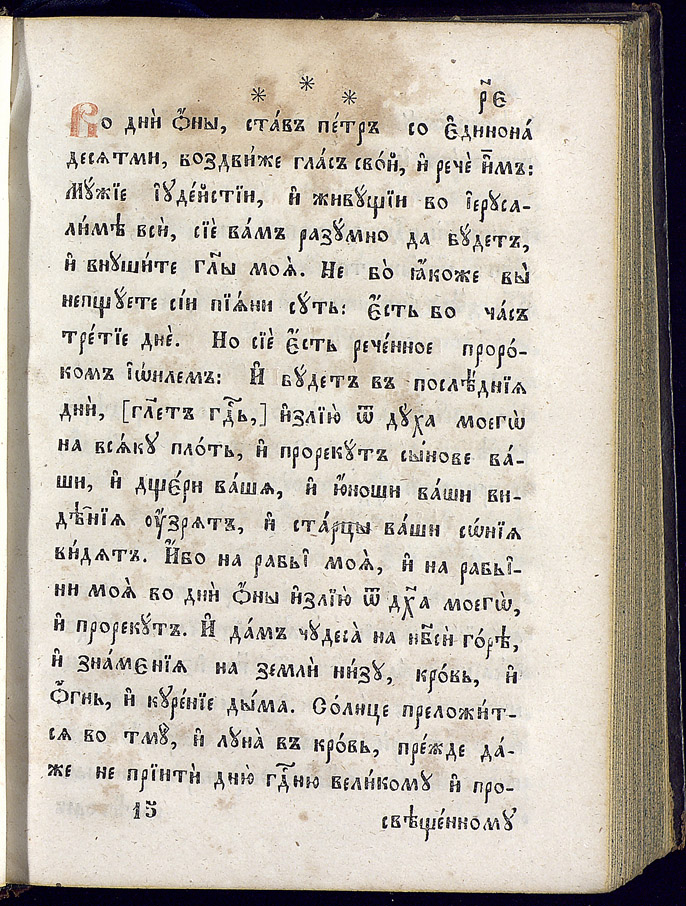 * * *
р҃е
Во дни̑ ѻ҆́ны, ста́въ пе́тръ со є҆динона́
десѧтми, воздви́же гла́съ сво́й, и҆ рече̑ и҆̀мъ:
Мꙋ́жїе і҆ꙋде́йстїи, и҆ живꙋщїи во і҆ерꙋса-
ли́мѣ всѝ, сїѐ ва́мъ разꙋмно да бꙋдетъ,
и҆ внꙋши́те гл҃ы моѧ̀. Не бо̀ ꙗ҆́коже вы̀
непщꙋете сі́и пїѧ́ни сꙋть: є҆́сть бо ча́съ
тре́тїе днѐ. Но сїѐ є҆́сть рече́нное проро́-
комъ і҆ѡи́лемъ: И҆̀ бꙋдетъ въ послѣ́днїѧ
дни̑, [гл҃етъ гдⷭ҇ь,] и҆злїю̀ ѿ дꙋ́ха моегѡ̀
на всѧ́кꙋ пло́ть, и҆ прорекꙋ́тъ сы́нове ва́-
ши, и҆ дще́ри ва́шѧ, и҆ ю҆́ноши ва́ши ви-
дѣ̑нїѧ ᲂу҆́зрѧтъ, и҆ ста́рцы ва́ши сѡ́нїѧ
ви́дѧтъ. И҆́бо на рабы̑ моѧ̑, и҆ на рабы̑-
ни моѧ̑ во дни̑ ѻ҆́ны и҆злїю̀ ѿ дх҃а моегѡ̀,
и҆ прорекꙋ́тъ. И҆ да́мъ чꙋдеса̀ на нб҃сѝ го́рѣ,
и҆ зна́мєнїѧ на землѝ ни́зꙋ, кро́вь, и҆
ѻ҆́гнь, и҆ кꙋре́нїе ды́ма. Со́лнце преложи́т-
сѧ во тмꙋ̀, и҆ лꙋна̀ въ кро́вь, пре́жде да́-
же не прїитѝ дню̀ гдⷭ҇ню вели́комꙋ и҆ про-
15
свѣще́нномꙋ